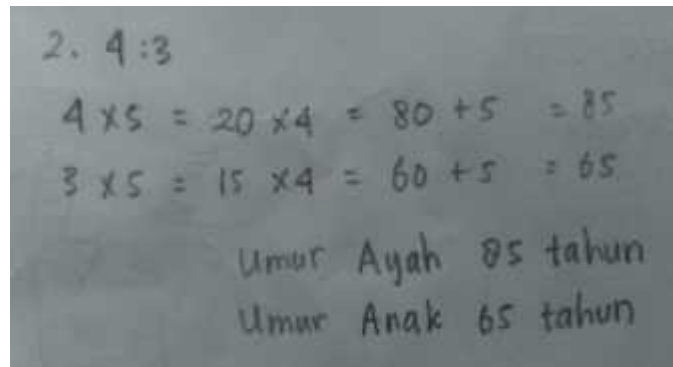 2. 4:3
4 x 5 = 20 x 4 = 80 + 5 = 85
3 x 5 = 15 x 4 = 60 + 5 = 65
Umur Ayah 85 tahun
Umur Anak 65 tahun